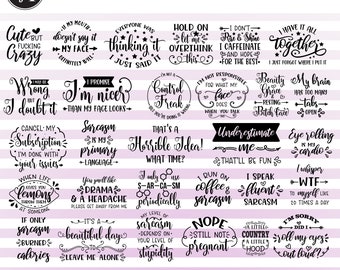 Cute but
fucking
Crazy
If my mouth
doesn't say it
my face
definitely will
Everyone was
thinking it
I just said it
Hold on
let me
overthink
this
I don't
Rise & Shine
I caffeinate
and hope
for the best
I have it all
together
I just forgot where I put it
Wrong
I doubt it
I promise
I'm nicer
than my face looks
I'm not a
Control
Freak
I'm not responsible
for what my
face does
when you talk
Beauty
Grace
Resting
Bitch Face
My brain
has too many
tabs
open
Cancel my
Subscription
I'm done with
your issues
Sarcasm
is my
primary
language
That's a
Horrible Idea!
What time?
Underestimate
me
That'll be fun
Eye rolling
is my
cardio
When life
gives you
lemons
throw them
at someone
You just like
Drama &
a headache
Please get away from me
I only use
S-Ar-Ca-Sm
periodically
I run on
coffee &
sarcasm
I speak
fluent
sarcasm
I whisper
WTF
to myself
at least
20 times a day
If only
sarcasm
burned
calories
It's a
beautiful day
to
leave me alone
My level of
sarcasm
depends on
your level of
stupidity
Nope
still not
pregnant
A little
country
a little
hood
I'm sorry
did I
roll my eyes
out loud?